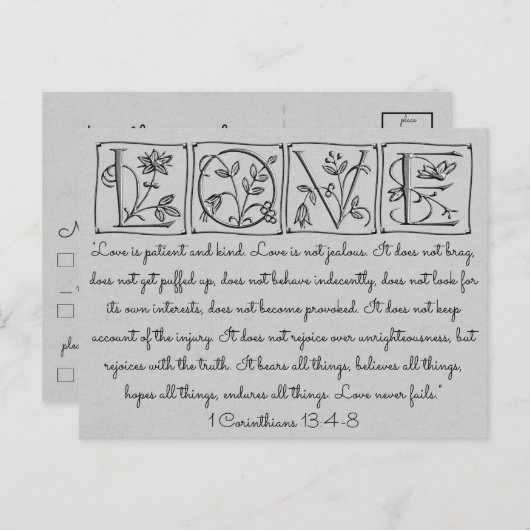 place
LOVE
"Love is patient and kind. Love is not jealous. It does not brag,
does not get puffed up, does not behave indecently, does not look for
its own interests, does not become provoked. It does not keep
account of the injury. It does not rejoice over unrighteousness, but
rejoices with the truth. It bears all things, believes all things,
hopes all things, endures all things. Love never fails."
1 Corinthians 13:4-8